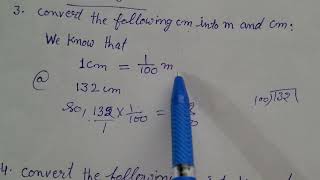 3. convert the following cm into m and cm:
We know that
1cm = 1/100 m
@ 132 cm
So, 132/1 × 1/100 =
100)132
4. convert the following